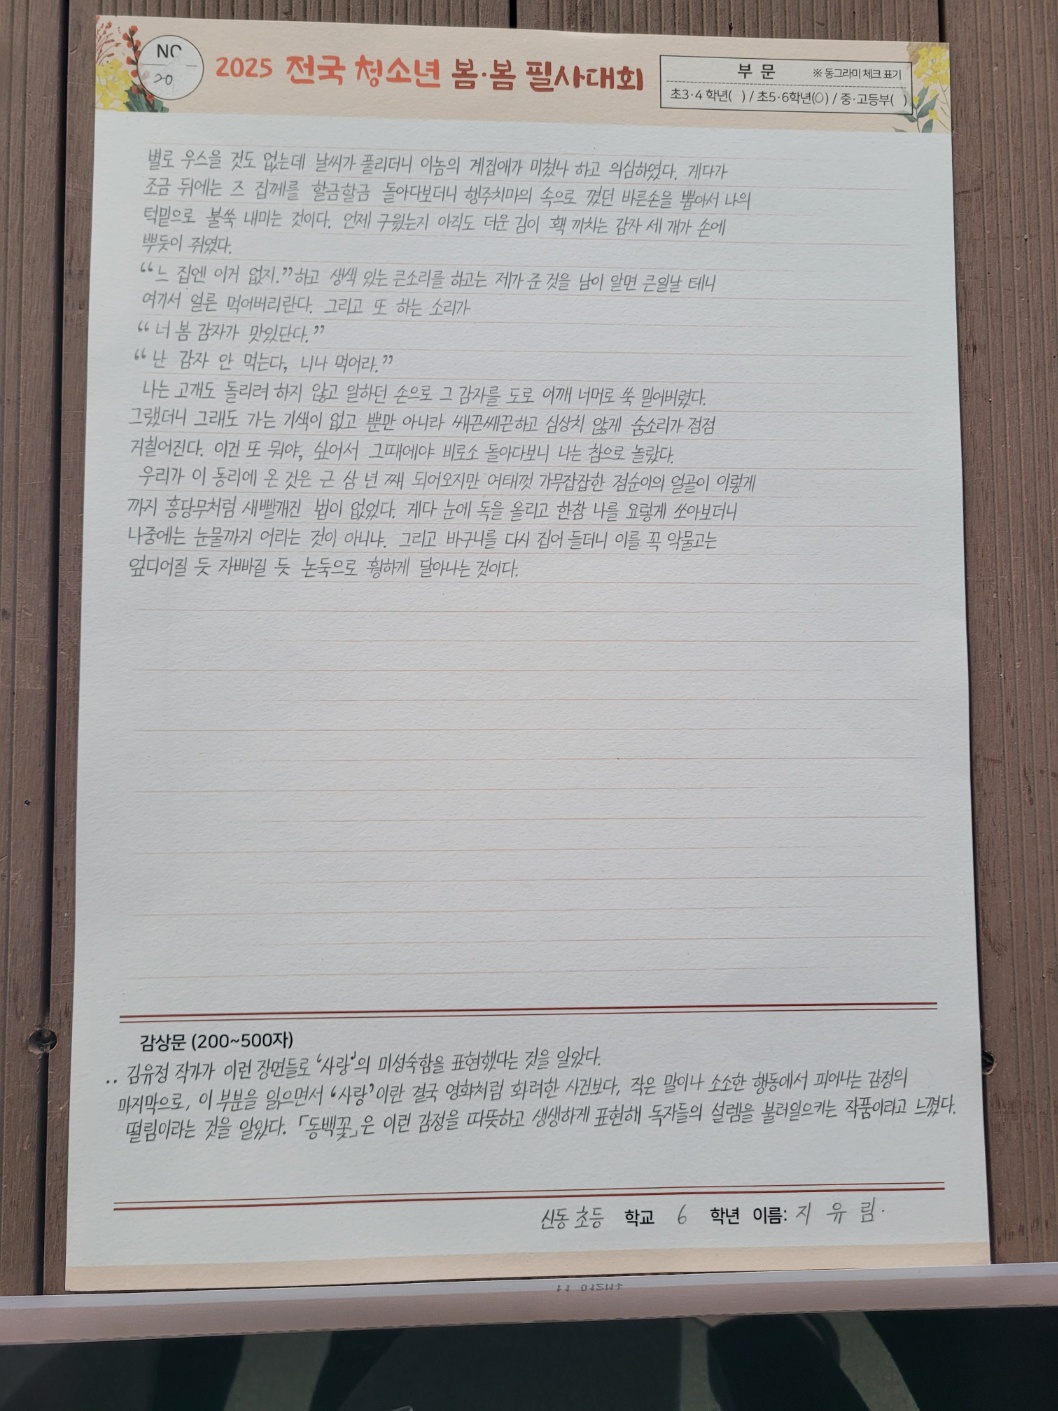 NO
20
2025 전국 청소년 봄·봄 필사대회
부 문 ※ 동그라미 체크 표기
초3·4 학년( ) / 초5·6학년(○) / 중·고등부( )
별로 우스울 것도 없는데 날씨가 풀리더니 이놈의 계집애가 미쳤나 하고 의심하였다. 게다가
조금 뒤에는 즈 집께를 할금할금 돌아다보더니 행주치마의 속으로 꼈던 바른손을 뽑아서 나의
턱밑으로 불쑥 내미는 것이다. 언제 구웠는지 아직도 더운 김이 홱 끼치는 감자 세 개가 손에
뿌듯이 쥐였다.
“느 집엔 이거 없지.”하고 생색 있는 큰소리를 하고는 제가 준 것을 남이 알면 큰일날 테니
여기서 얼른 먹어버리란다. 그리고 또 하는 소리가
“너 봄 감자가 맛있단다.”
“난 감자 안 먹는다, 니나 먹어라.”
나는 고개도 돌리려 하지 않고 일하던 손으로 그 감자를 도로 어깨 너머로 쑥 밀어버렸다.
그랬더니 그래도 가는 기색이 없고 뿐만 아니라 쌔끈쌔끈하고 심상치 않게 숨소리가 점점
거칠어진다. 이건 또 뭐야, 싶어서 그때에야 비로소 돌아다보니 나는 참으로 놀랐다.
우리가 이 동리에 온 것은 근 삼 년 째 되어오지만 여태껏 가무잡잡한 점순이의 얼골이 이렇게
까지 홍당무처럼 새빨개진 법이 없었다. 게다 눈에 독을 올리고 한참 나를 요렇게 쏘아보더니
나중에는 눈물까지 어리는 것이 아니냐. 그리고 바구니를 다시 집어 들더니 이를 꼭 악물고는
엎디어질 듯 자빠질 듯 논둑으로 횡하게 달아나는 것이다.
감상문 (200~500자)
.. 김유정 작가가 이런 장면들로 ‘사랑’의 미성숙함을 표현했다는 것을 알았다.
마지막으로, 이 부분을 읽으면서 ‘사랑’이란 결국 영화처럼 화려한 사건보다, 작은 말이나 소소한 행동에서 피어나는 감정의
떨림이라는 것을 알았다. 「동백꽃」은 이런 감정을 따뜻하고 생생하게 표현해 독자들의 설렘을 불러일으키는 작품이라고 느꼈다.
신동 초등 학교 6 학년 이름: 지 유 림.